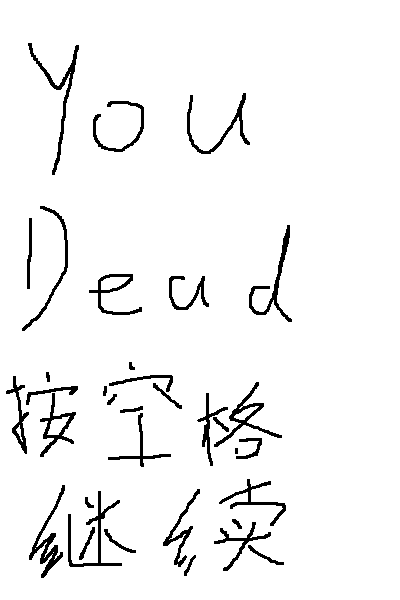 You
Dead
按空格
继续